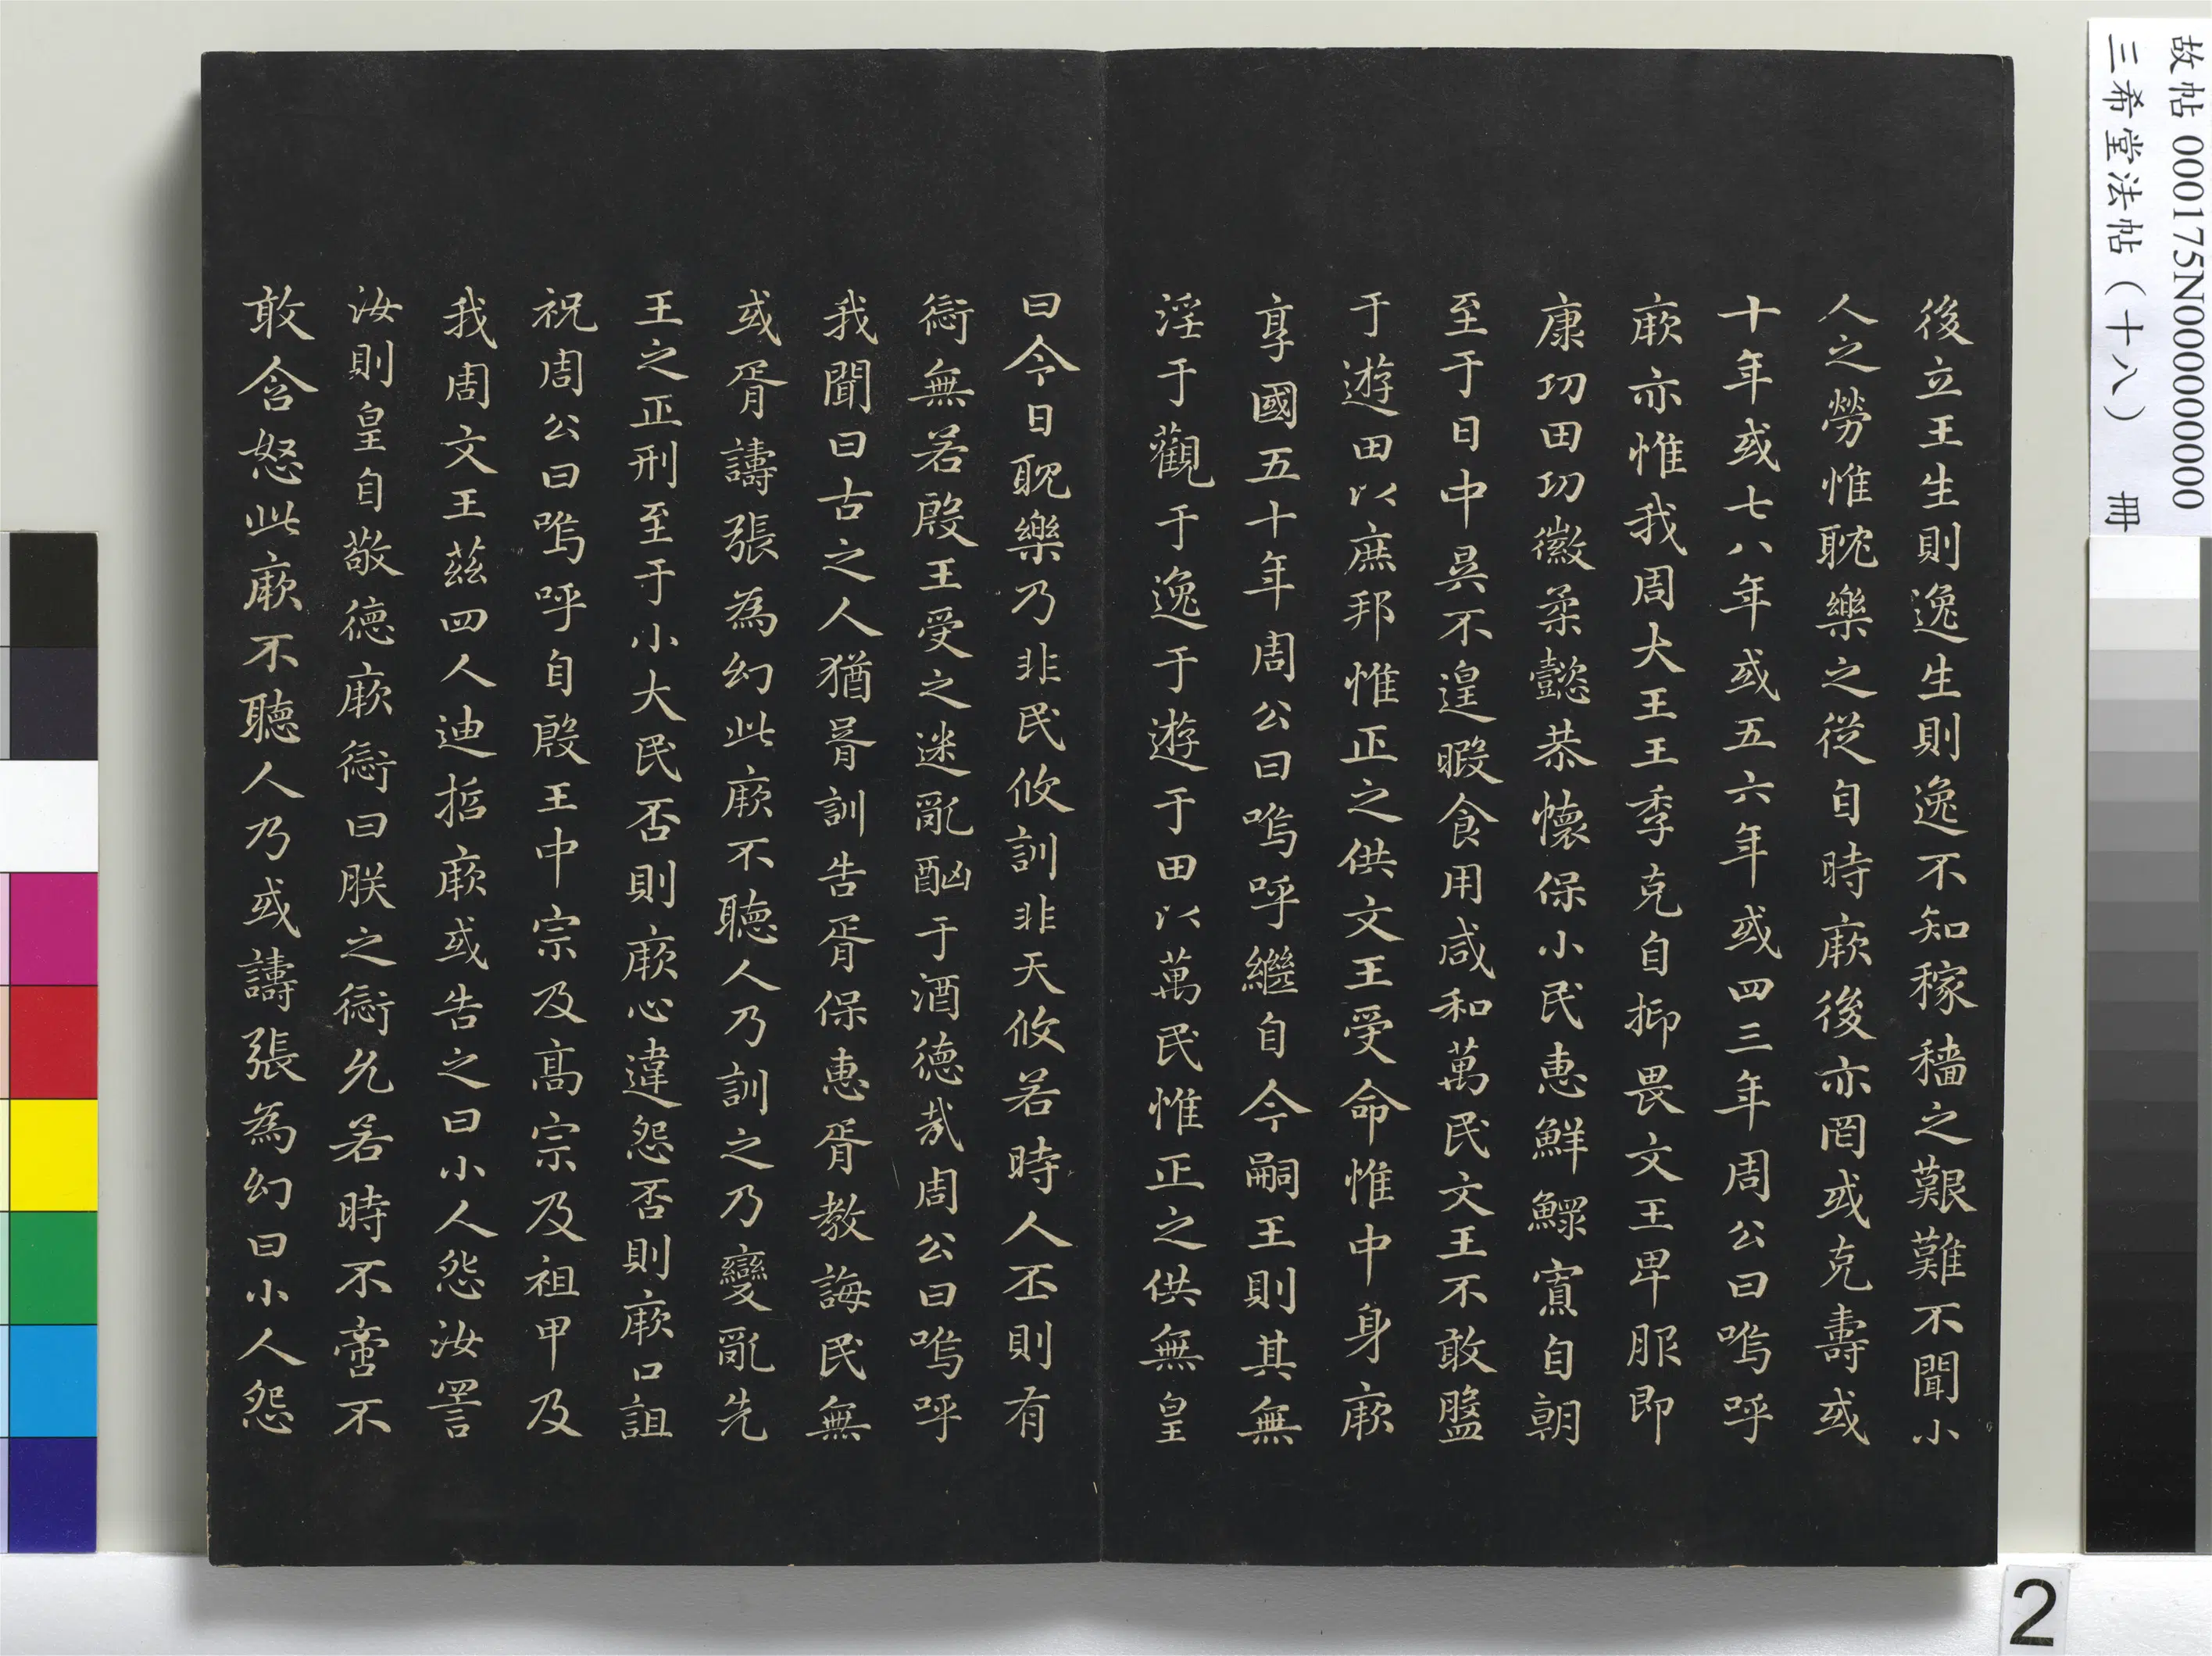 故帖 000175N000000000
三希堂法帖（十八） 冊
後立王生則逸生則逸不知稼穡之艱難不聞小
人之勞惟耽樂之從自時厥後亦罔或克壽或
十年或七八年或五六年或四三年周公曰嗚呼
厥亦惟我周大王王季克自抑畏文王卑服即
康功田功徽柔懿恭懷保小民惠鮮鰥寡自朝
至于日中昃不遑暇食用咸和萬民文王不敢盤
于遊田以庶邦惟正之供文王受命惟中身厥
享國五十年周公曰嗚呼繼自今嗣王則其無
淫于觀于逸于遊于田以萬民惟正之供無皇
曰今日耽樂乃非民攸訓非天攸若時人丕則有
愆無若殷王受之迷亂酗于酒德哉周公曰嗚呼
我聞曰古之人猶胥訓告胥保惠胥教誨民無
或胥譸張為幻此厥不聽人乃訓之乃變亂先
王之正刑至于小大民否則厥心違怨否則厥口詛
祝周公曰嗚呼自殷王中宗及高宗及祖甲及
我周文王茲四人迪哲厥或告之曰小人怨汝詈
汝則皇自敬德厥愆曰朕之愆允若時不啻不
敢含怒此厥不聽人乃或譸張為幻曰小人怨
2